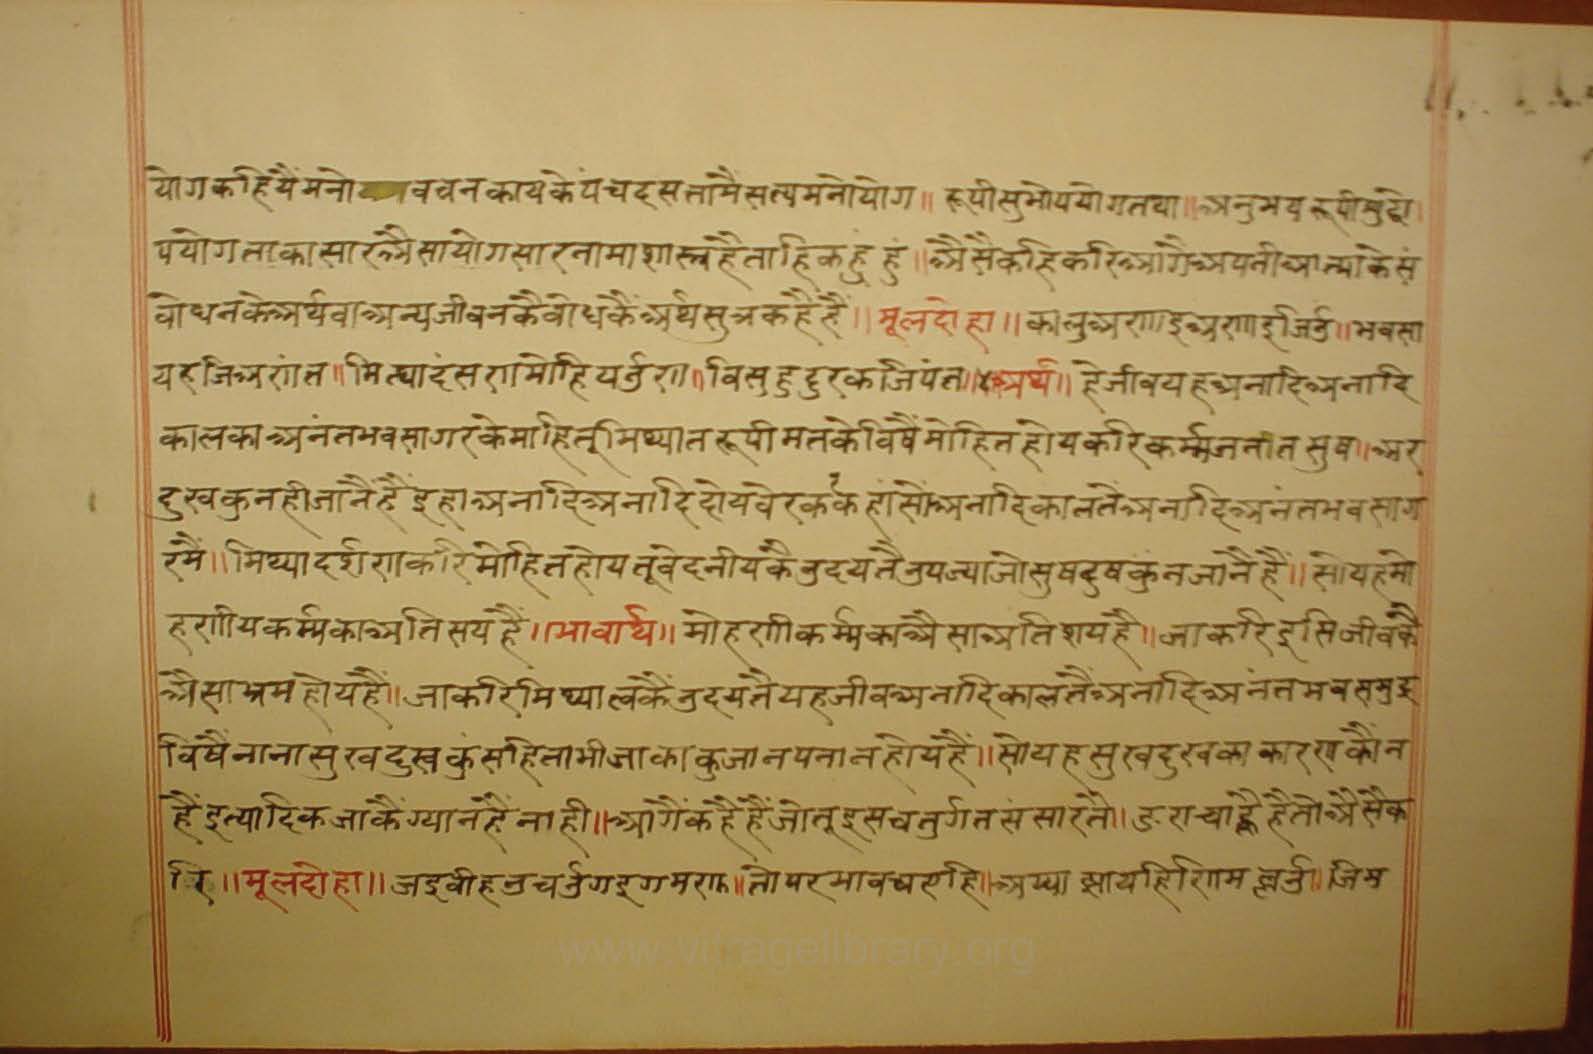 योगकहियैंमनो वचनकायकेपंचदसतामैंसत्यमनोयोग॥ रूपीसुभोपयोगतथा॥अनुभयरूपीसुद्धो।
पयोगताकासारअैसायोगसारनामाशास्त्रहैताहिकहुं हुं॥अैसैकहिकरिआगैअपनीआत्माकेसं
वोधनकेअर्थवाअन्यजीवनकैवोधकैंअर्थसुत्रकहैहैं॥मूलदोहा॥कालुअणाइअणाइजिउ॥भवसा
यरजिअणंत॥मित्थादंसणमोहियउण॥विसुहुदुरकजिपंत॥अर्थ॥हेजीवयहअनादिअनादि
कालकाअनंतभवसागरकेमाहितूमिथ्यातरूपीमतकेविषैंमोहितहोयकरिकर्म्मजनीतसुष॥अर
दुखकुनहीजानैंहैंइहाअनादिअनादिदोयवेरकर्कहांसोअनादिकालतेंअनादिअनंतभवसाग
रमैं॥मिथ्यादर्शणकरिमोहितहोयतूवेदनीयकैउदयतैउपज्याजोसुषदुषकुंनजानैहैं॥सोयहमो
हणीयकर्म्मकाअतिसयहैं॥भावार्थ॥मोहणीकर्म्मकाअैसाअतिशयहै॥जाकरिइसिजीवकै
अैसाभ्रमहोयहैं॥जाकरिमिथ्यात्वकैंउदयतैयहजीवअनादिकालतैंअनादिअनंतभवसमुद्र
विषैंनानासुखदुखकुंसहितामीजाकाकुजानपनानहोयहैं॥सोयहसुखदुखकाकारणकौन
हैंइत्यादिकजाकैंग्यानहैंनाही॥आगैंकहैहैंजोतूइसचतुर्गतसंसारतै॥डराचाहैहैतोअैसैक
रि॥मूलदोहा॥जइवीहउचउगइगमण॥तोपरभावचएहि॥अप्पाझायहिणिमल्लउ॥जिम